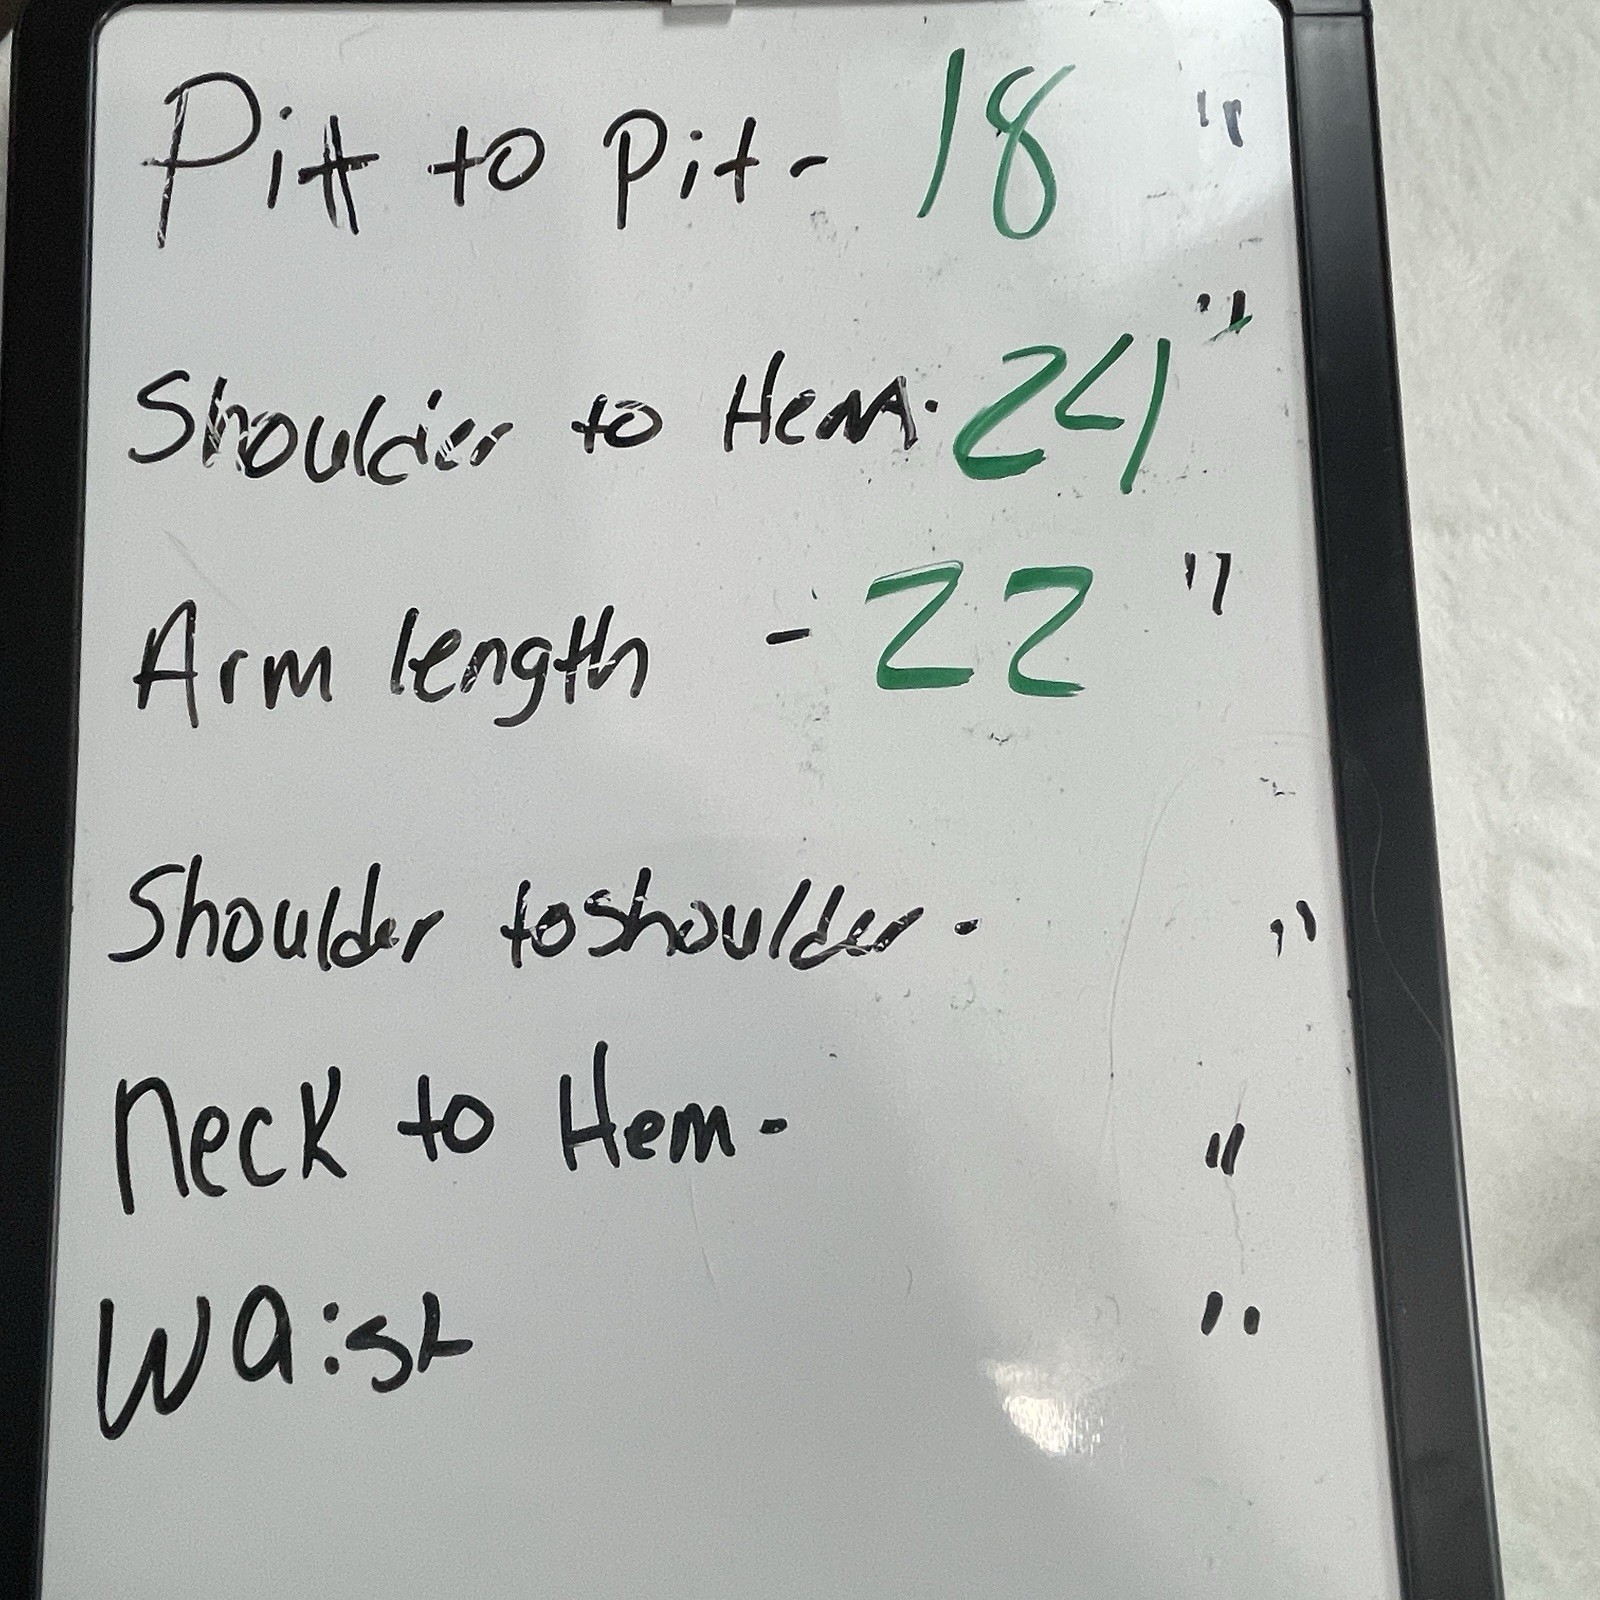 Pitt to Pit- 18 "
Shoulder to Hem. 24 "
Arm length - 22 "
Shoulder to shoulder - "
Neck to Hem - "
Waist "